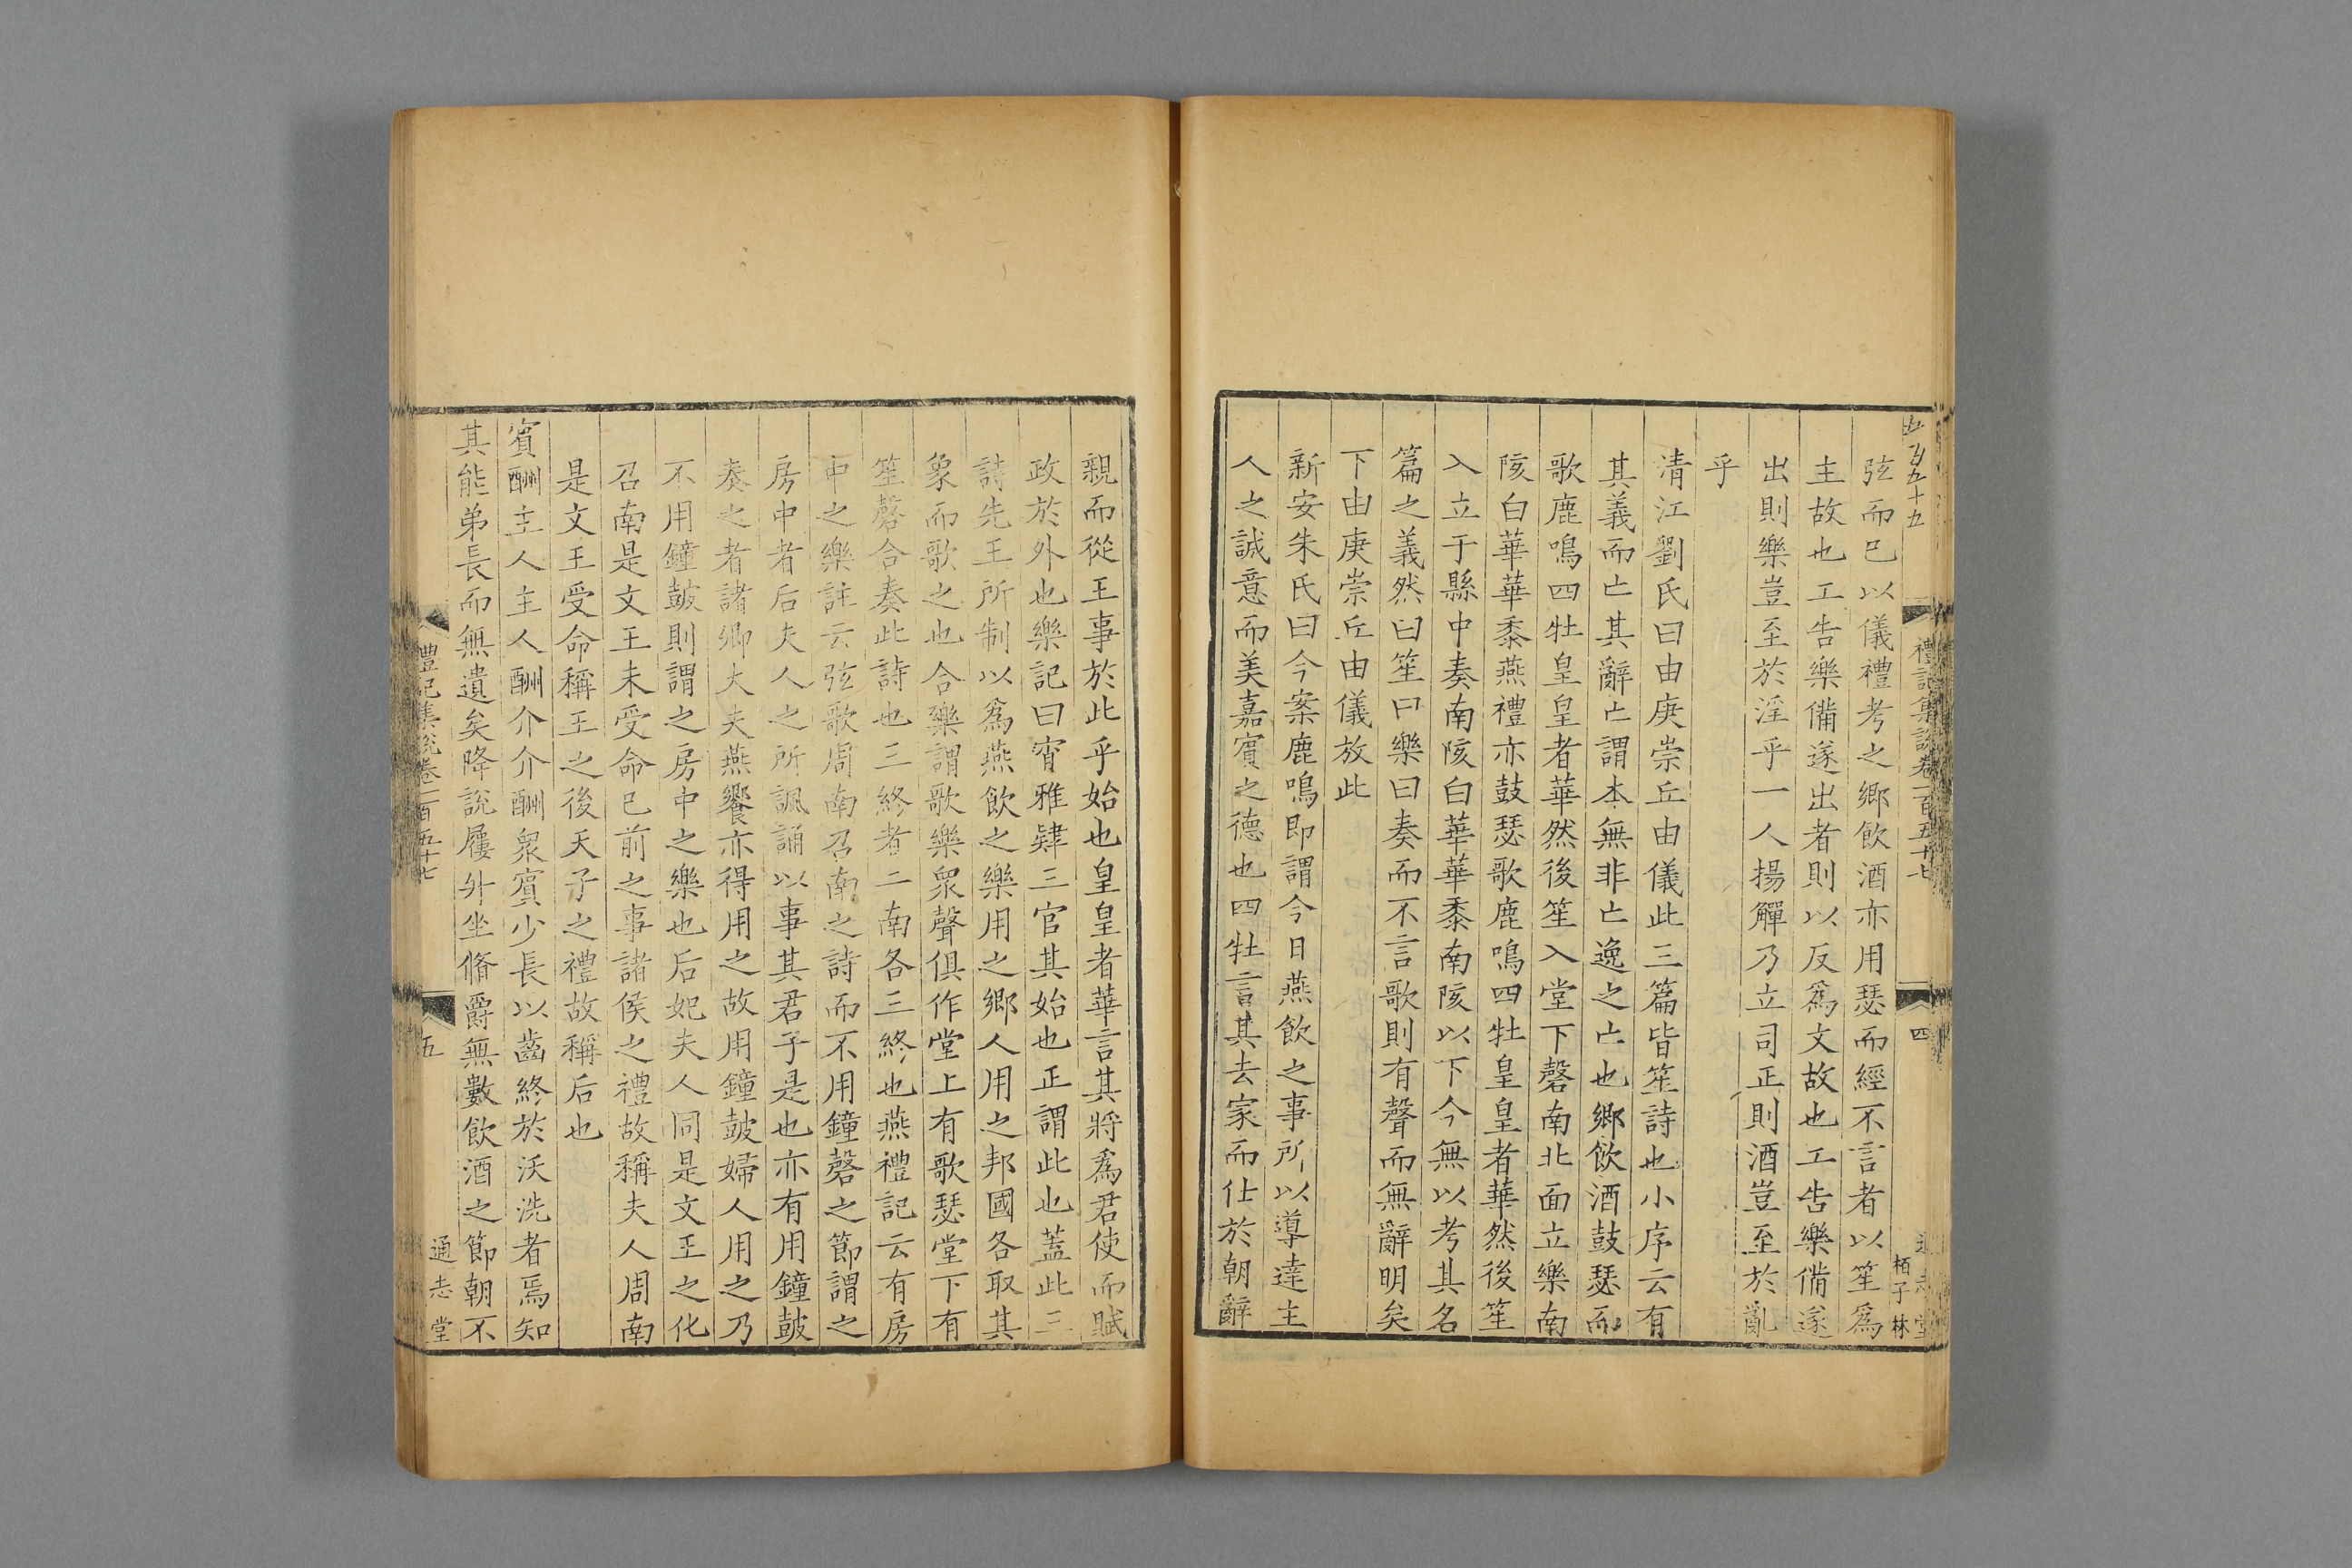 五百五十五
禮記集說卷一百五十七
四
通志堂
栢子林
弦而已以儀禮考之鄉飲酒亦用瑟而經不言者以笙爲
主故也工告樂備遂出者則以反爲文故也工告樂備遂
出則樂豈至於淫乎一人揚觶乃立司正則酒豈至於亂
乎
清江劉氏曰由庚崇丘由儀此三篇皆笙詩也小序云有
其義而亡其辭亡謂本無非亡逸之亡也鄉飲酒鼓瑟而
歌鹿鳴四牡皇皇者華然後笙入堂下磬南北面立樂南
陔白華華黍燕禮亦鼓瑟歌鹿鳴四牡皇皇者華然後笙
入立于縣中奏南陔白華華黍南陔以下今無以考其名
篇之義然曰笙曰樂曰奏而不言歌則有聲而無辭明矣
下由庚崇丘由儀放此
新安朱氏曰今案鹿鳴即謂今日燕飲之事所以導達主
人之誠意而美嘉賓之德也四牡言其去家而仕於朝辭
親而從王事於此乎始也皇皇者華言其將爲君使而賦
政於外也樂記曰宵雅肄三官其始也正謂此也蓋此三
詩先王所制以爲燕飲之樂用之鄉人用之邦國各取其
象而歌之也合樂謂歌樂眾聲俱作堂上有歌瑟堂下有
笙磬合奏此詩也三終者二南各三終也燕禮記云有房
中之樂註云弦歌周南召南之詩而不用鐘磬之節謂之
房中者后夫人之所諷誦以事其君子是也亦有用鐘鼓
奏之者諸卿大夫燕饗亦得用之故用鐘鼓婦人用之乃
不用鐘鼓則謂之房中之樂也后妃夫人同是文王之化
召南是文王未受命已前之事諸侯之禮故稱夫人周南
是文王受命稱王之後天子之禮故稱后也
賓酬主人主人酬介介酬眾賓少長以齒終於沃洗者焉知
其能弟長而無遺矣降說屨升坐脩爵無數飲酒之節朝不
禮記集說卷一百五十七
五
通志堂